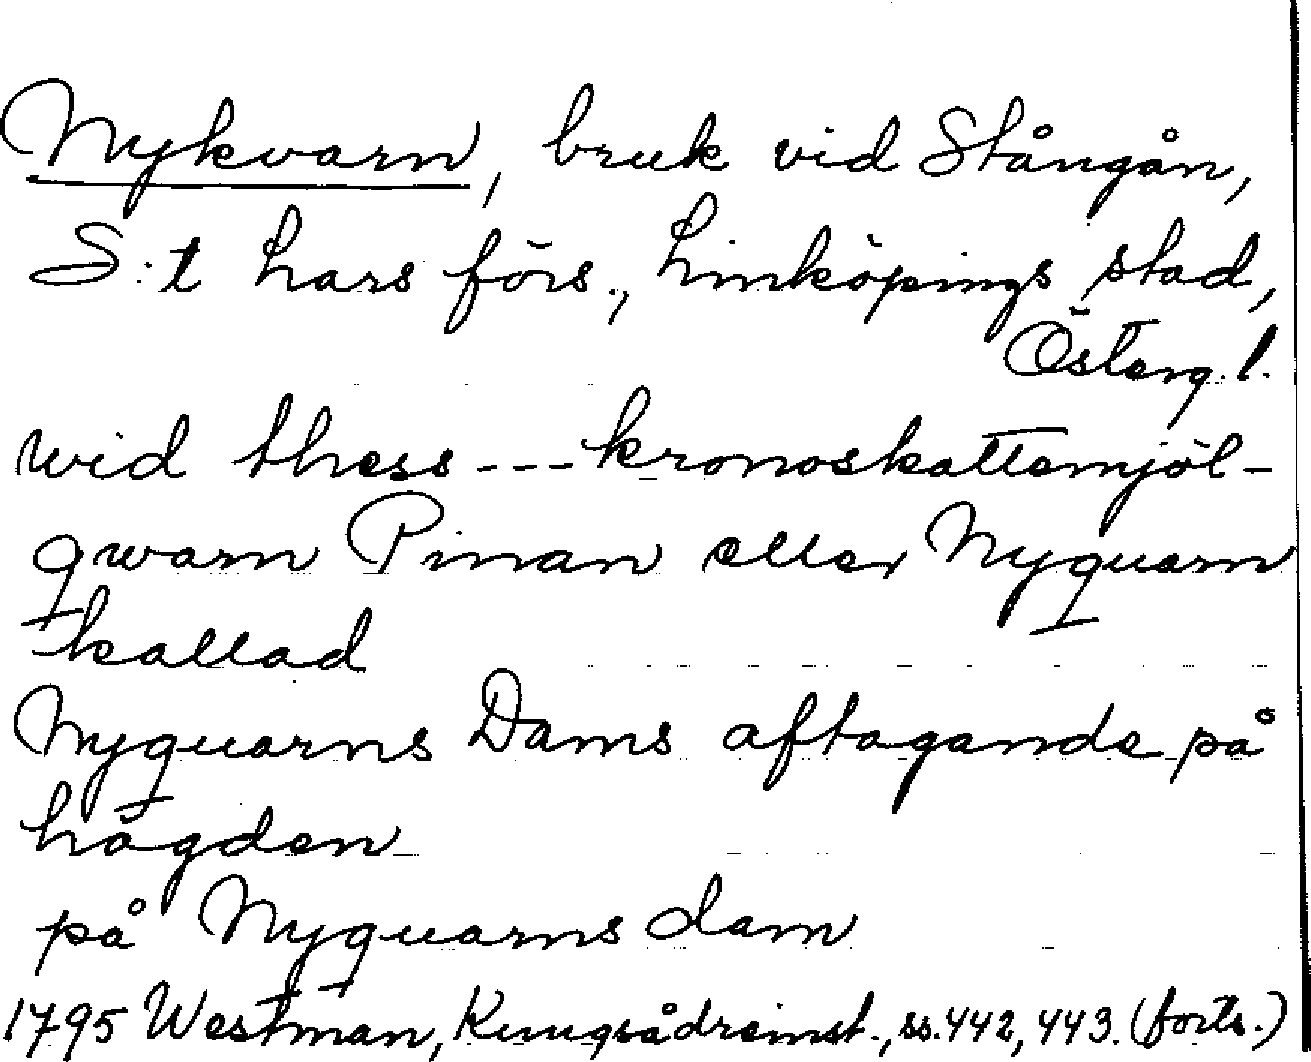 Nykvarn, bruk vid Stångån,
S:t Lars förs., Linköpings stad,
Österg. l.
wid thess --- kronoskattemjöl-
qwarn Pinan eller Nyquarn
kallad
Nyquarns Dams aftagande på
högden
på Nyquarns dam
1795 Westman, Kungsådreinst., ss. 442, 443. (forts.)